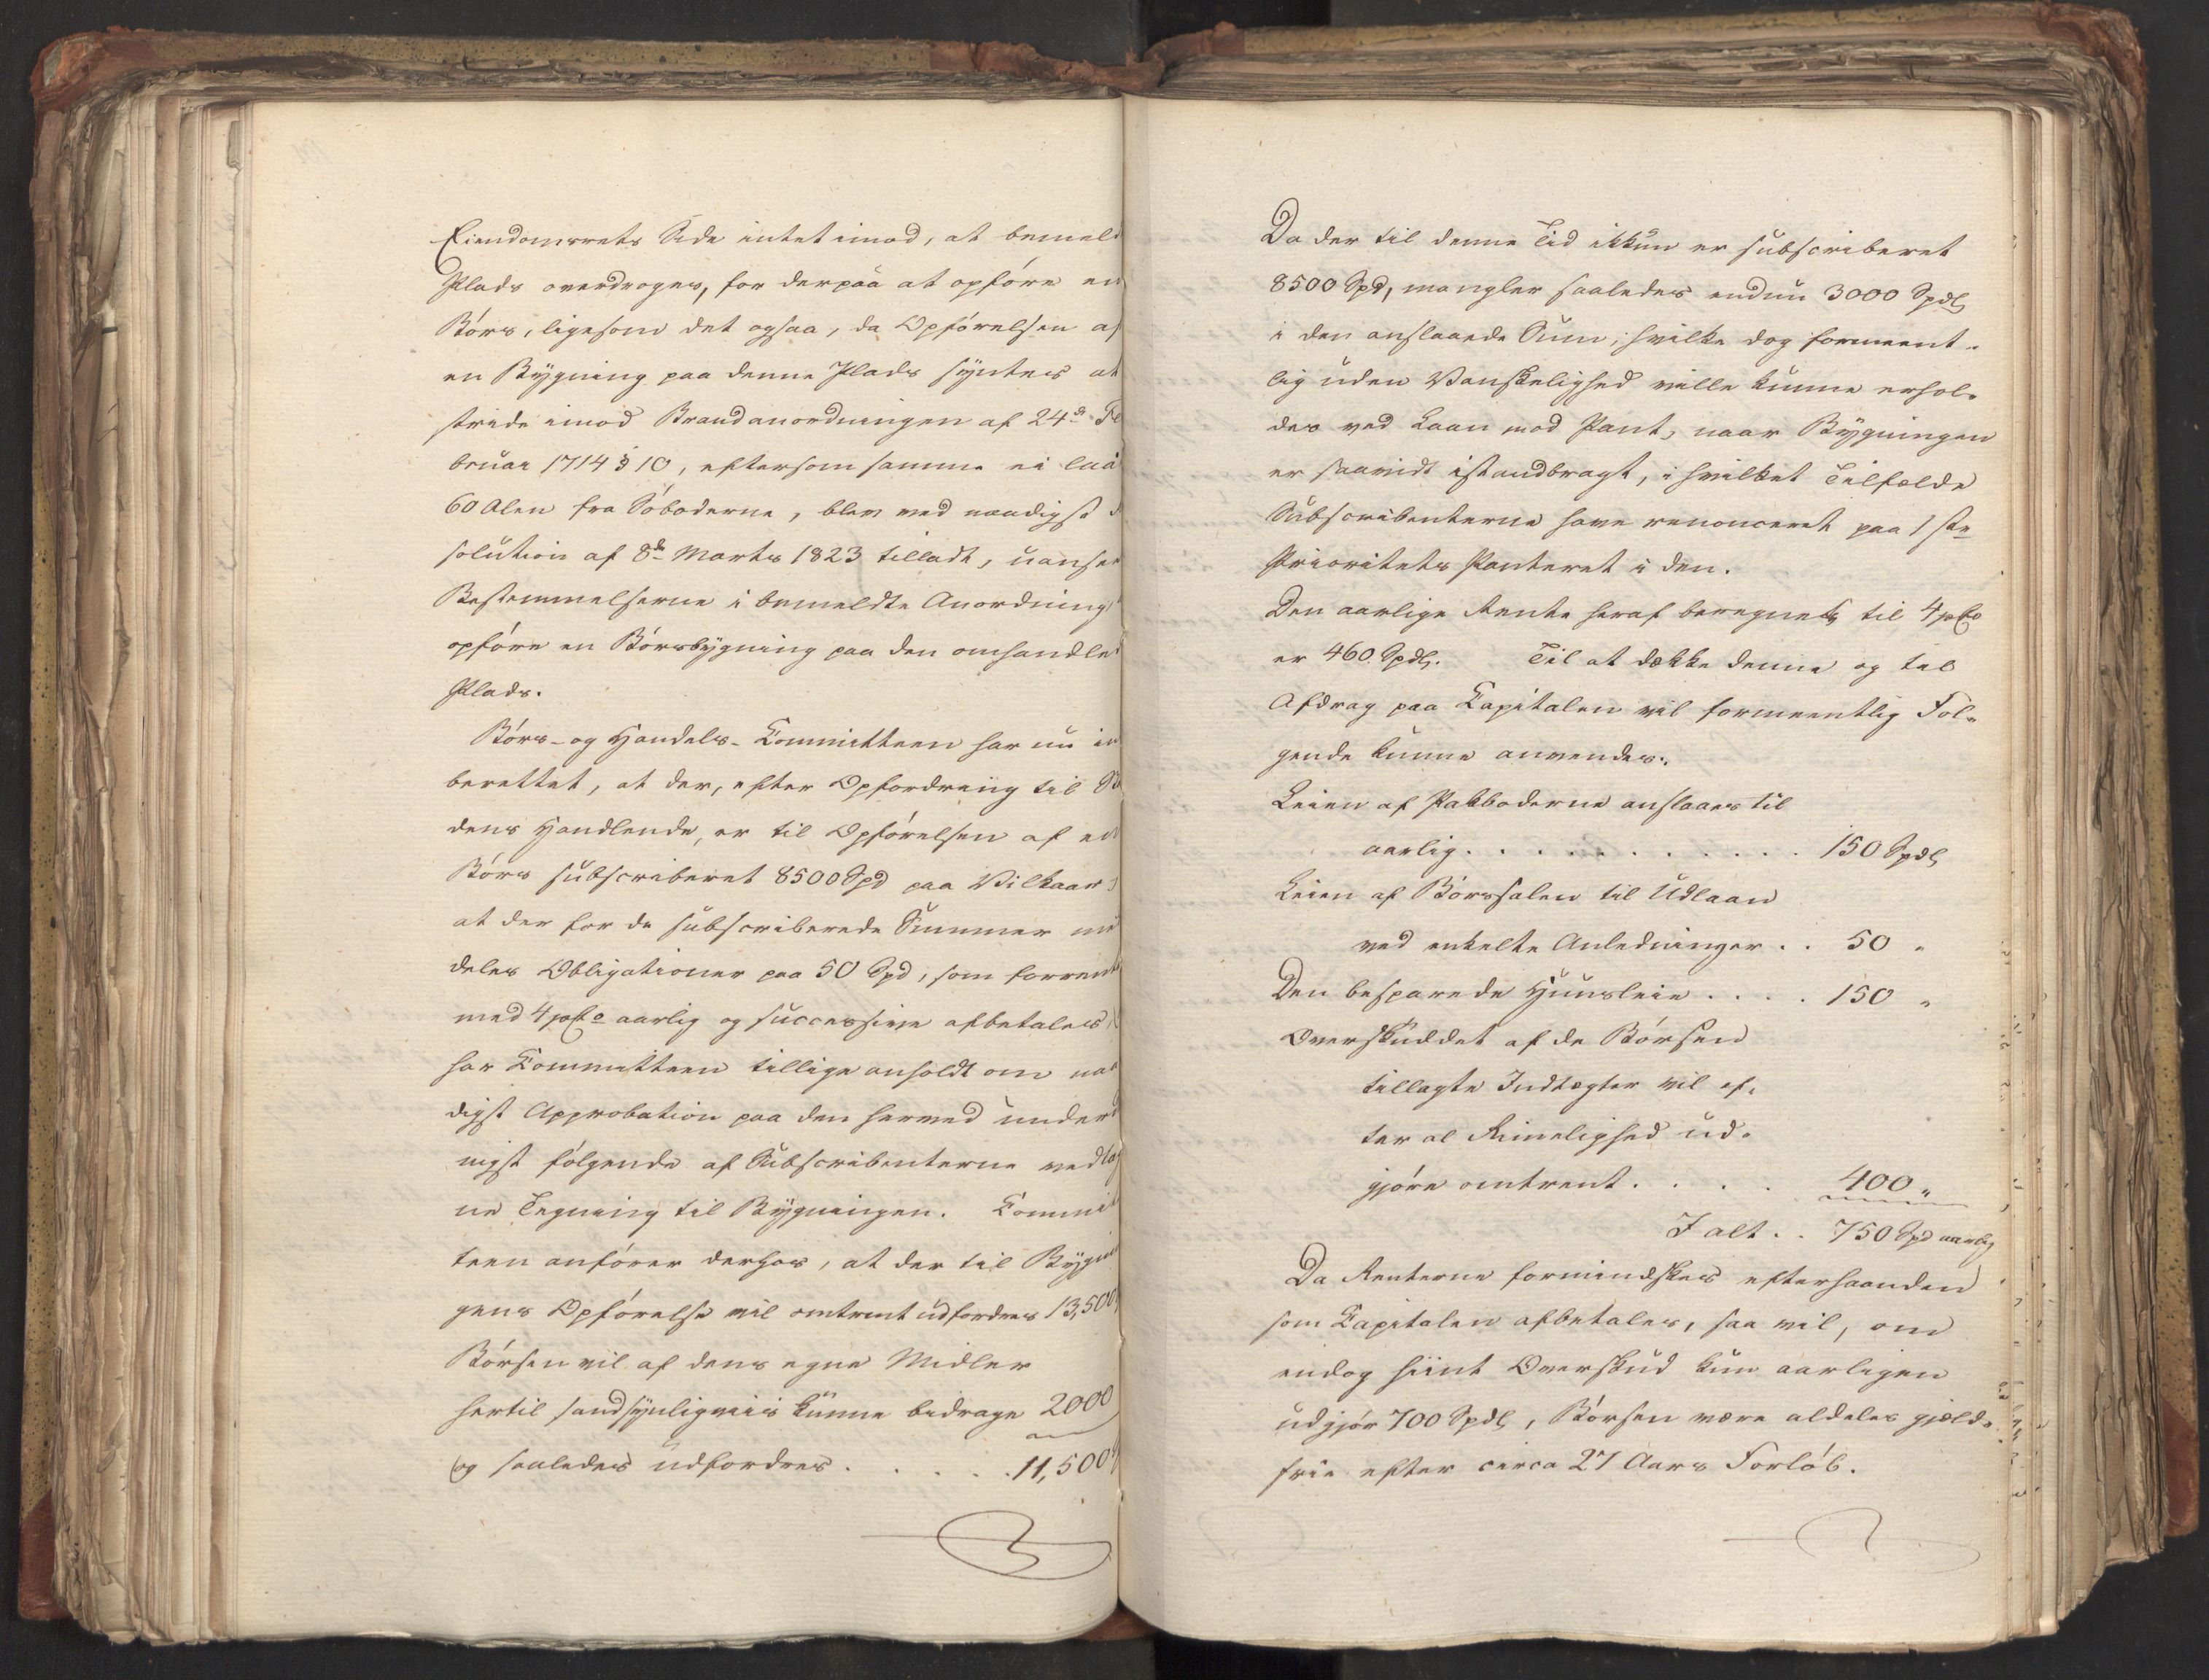 Eiendomsrets Side intet imod, at bemeld
Plads overdroges, for derpaa at opføre en
Børs, ligesom det ogsaa, da Opførelsen af
en Bygning paa denne Plads syntes at
stride imod Brandanordningen af 24de Fe
bruar 1714 § 10, eftersom samme ei laa
60 Alen fra Søboderne, blev ved naadigst
solution af 8de Marts 1823 tilladt, uanseet
Bestemmelserne i bemeldte Anordning
opføre en Børsbygning paa den omhandled
Plads.
Børs- og Handels-Committeen har nu in
berettet, at der, efter Opfordring til Sta
dens Handlende, er til Opførelsen af en
Børs subscriberet 8500 Spd paa Vilkaar
at der for de subscriberede Summer med
deles Obligationer paa 50 Spd, som forrente
med 4 pCto aarlig og successive afbetales
har Committeen tillige anholdt om naa
digst Approbation paa den hermed under
nigst følgende af Subscribenterne vedtag
ne Tegning til Bygningen. Commit
teen anfører derhos, at der til Bygnin
gens Opførelse vil omtrent udfordres 13,500
Børsen vil af dens egne Midler
hertil sandsynligviis kunne bidrage 2000
og saaledes udfordres . . . . . 11,500
Da der til denne Tid ikkun er subscriberet
8500 Spd, mangler saaledes endnu 3000 Spdl
i den anslaaede Sum; hvilke dog formeent-
lig uden Vanskelighed ville kunne erhol-
des ved Laan mod Pant, naar Bygningen
er saavidt istandbragt, i hvilket Tilfælde
Subscribenterne have renonceret paa 1ste
Prioritets Panteret i den.
Den aarlige Rente heraf beregnet til 4 pCto
er 460 Spdl. Til at dække denne og til
Afdrag paa Capitalen vil formeentlig Føl-
gende kunne anvendes:
Leien af Pakboderne anslaaes til
aarlig . . . . . . . . . . . . 150 Spdl
Leien af Børssalen til Udlaan
ved enkelte Anledninger . . 50 "
Den besparede Huusleie . . . . 150 "
Overskuddet af de Børsen
tillagte Indtægter vil ef-
ter al Rimelighed ud-
gjøre omtrent . . . . 400 "
I alt . . 750 Spd aarlig
Da Renterne formindskes efterhaanden
som Capitalen afbetales, saa vil, om
endog hiint Overskud kun aarligen
udgjør 700 Spdl, Børsen være aldeles gjeld-
frie efter circa 27 Aars Forløb.